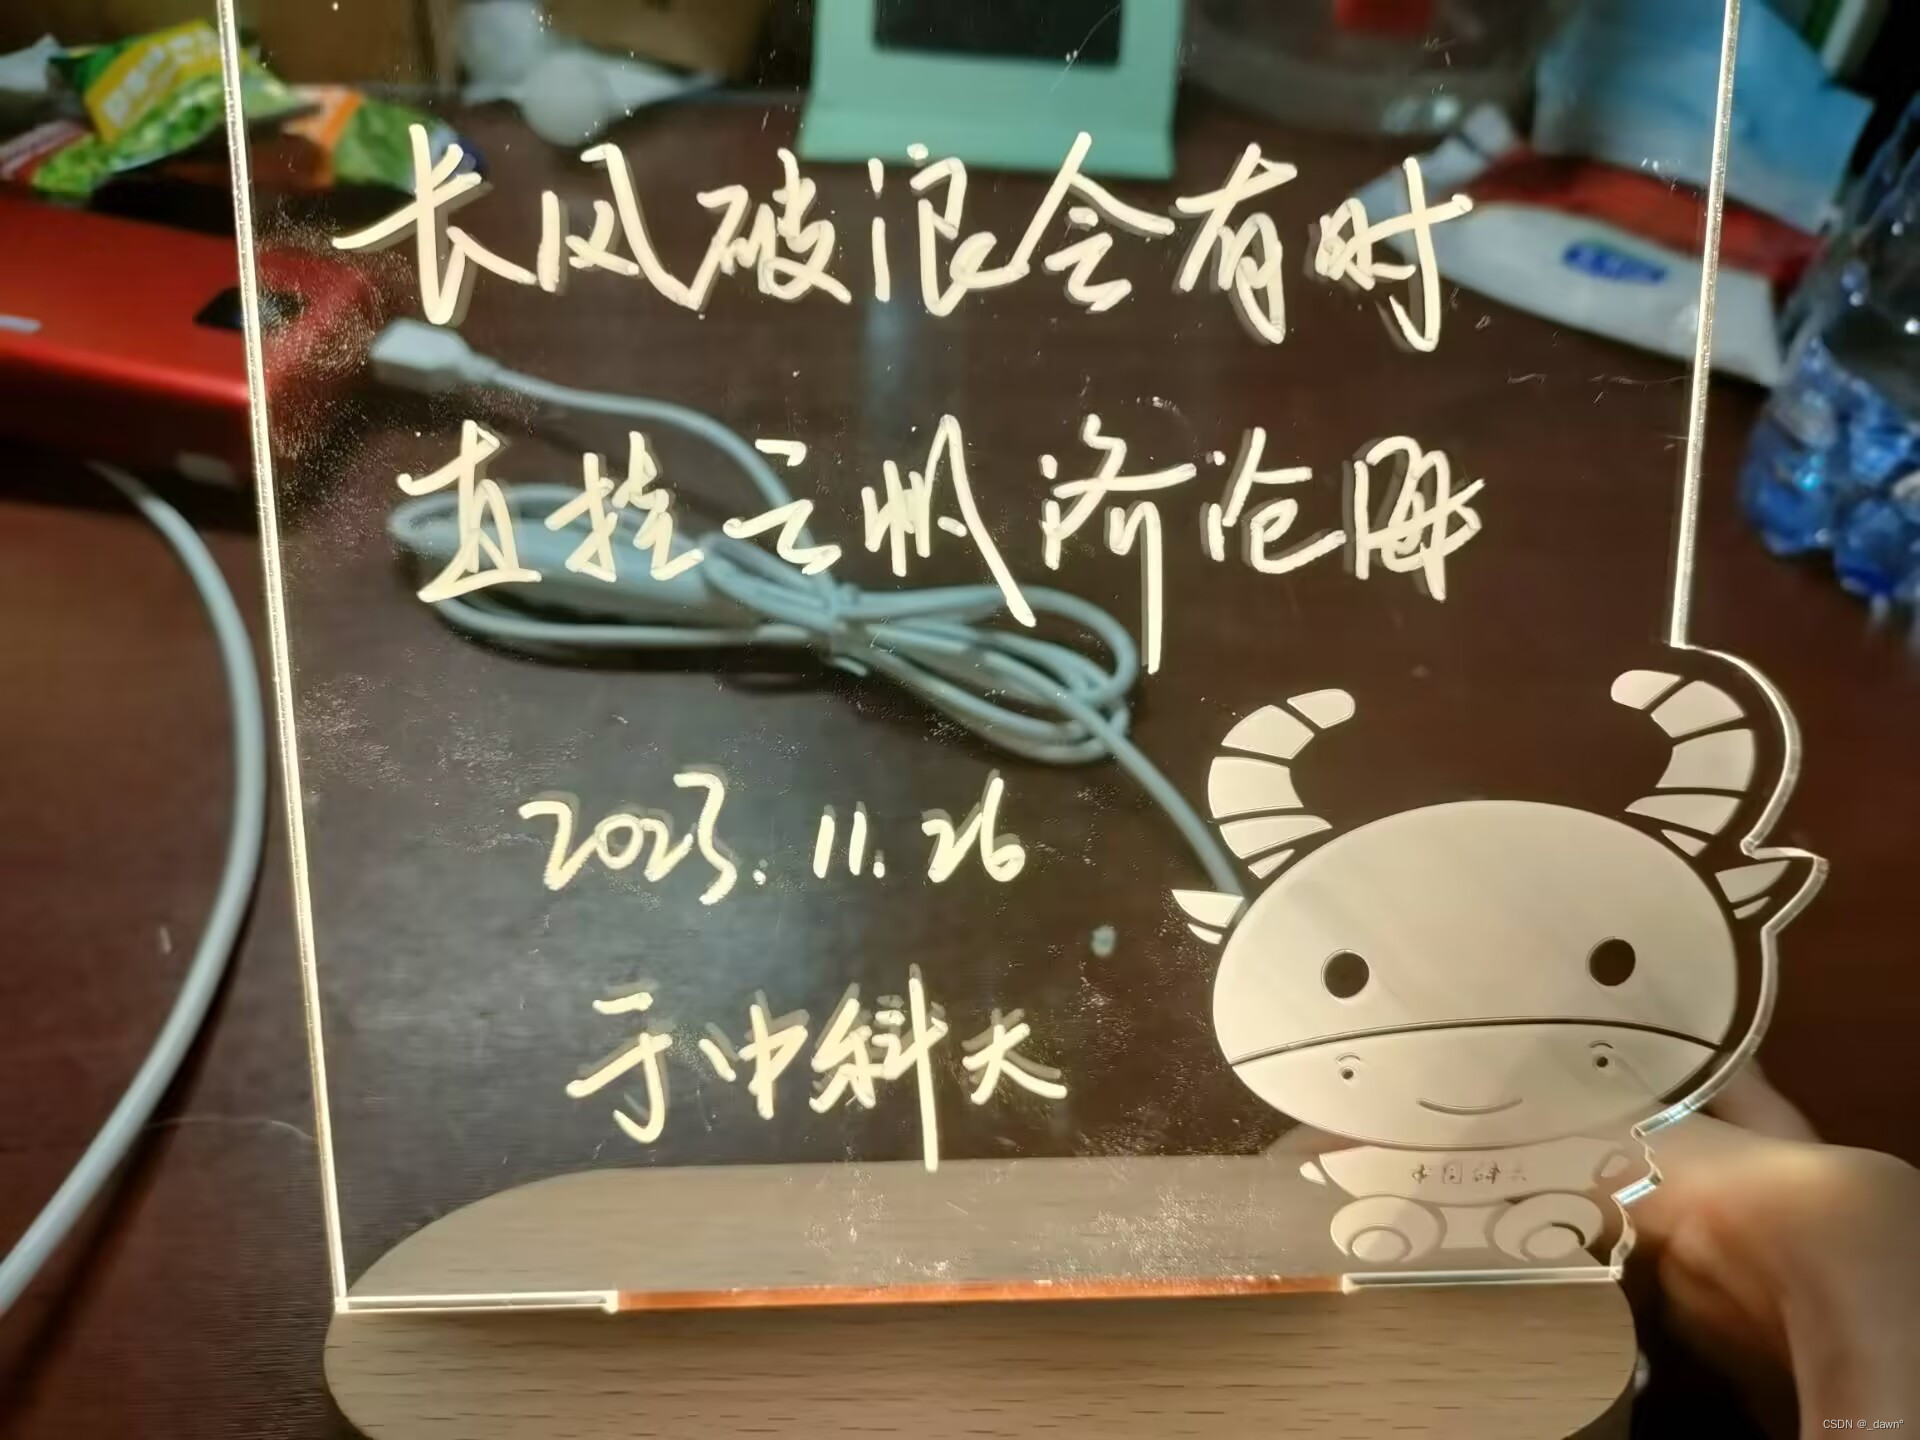 长风破浪会有时
直挂云帆济沧海
2023.11.26
于中科大
中国科大
CSDN @_dawn°